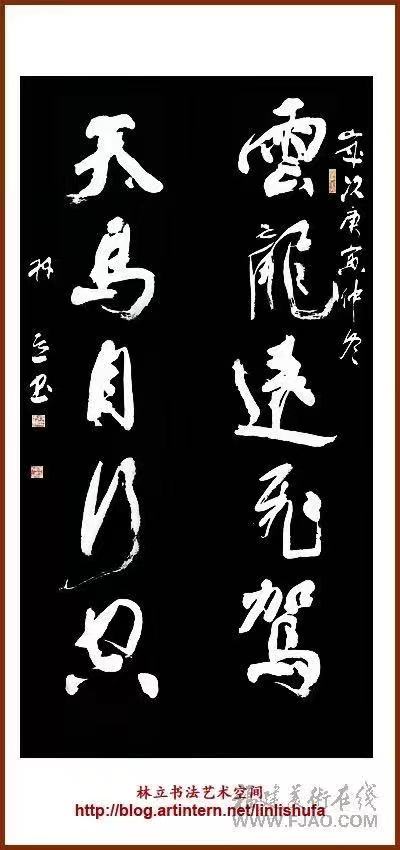 歲次庚寅仲冬
雲龍遠飛駕
天馬自行空
林立書
林立书法艺术空间
http://blog.artintern.net/linlishufa
福建美术在线
WWW.FJAO.COM